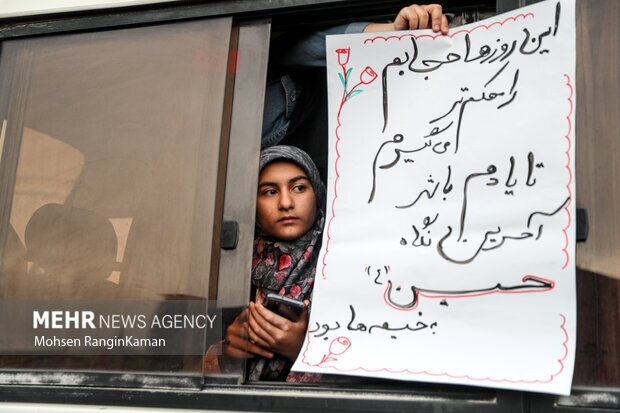 این روزها حجابم
را محکم تر
می گیرم
تا یادم باشد
آخرین نگاه
حسین "(ع)"
به خیمه ها بود
MEHR NEWS AGENCY
Mohsen RanginKaman